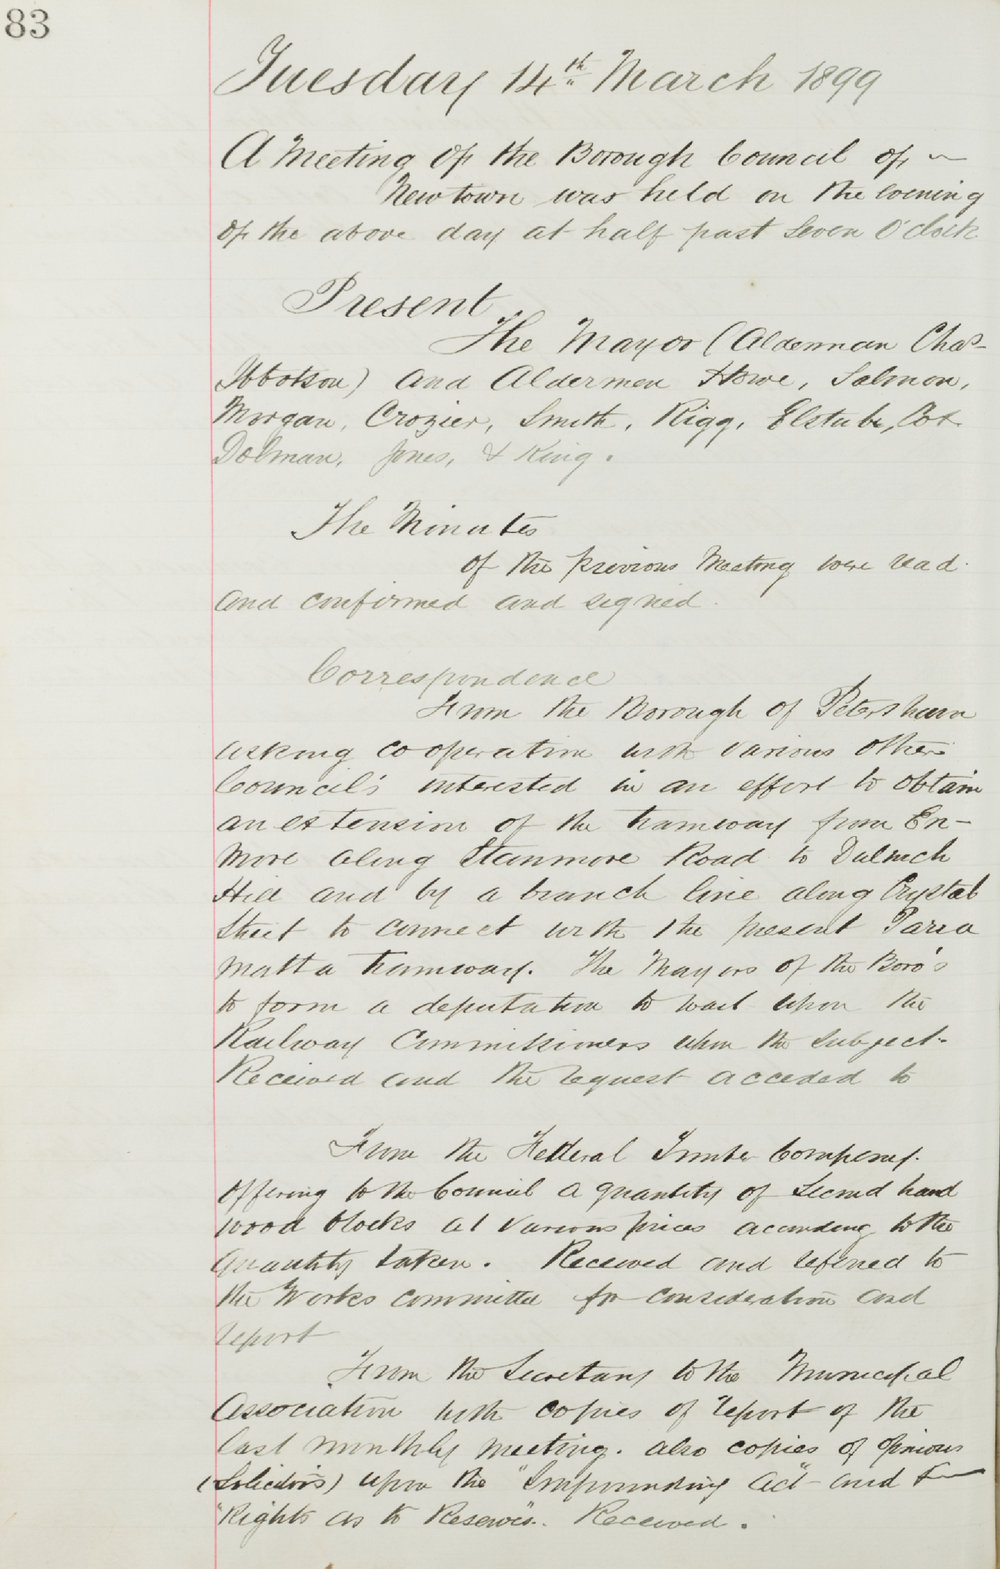 83
Tuesday 14th March 1899
A Meeting of the Borough Council of
Newtown was held on the evening
of the above day at half past Seven O'Clock
Present
The Mayor (Alderman Chas
Ibbotson) and Aldermen Howe, Salmon,
Morgan, Crozier, Smith, Rigg, Elstub, Cox
Dolman, Jones, & King.
The Minutes
of the previous Meeting were read
and confirmed and signed.
Correspondence
From the Borough of Petersham
asking co operation with various other
Council's interested in an effort to obtain
an extension of the tramway from En-
more along Stanmore Road to Dulwich
Hill and by a branch line along Crystal
Street to connect with the present Parra
matta tramway. The Mayors of the Boro's
to form a deputation to wait upon the
Railway Commissioners upon the subject.
Received and the request acceded to
From the Federal Timber Company.
offering to the Council a quantity of Second hand
wood blocks at various prices according to the
quantity taken. Received and referred to
the Works committee for consideration and
report
From the Secretary to the Municipal
Association with copies of report of the
last monthly meeting. also copies of opinions
(Solicitors) upon the "Impounding Act" and
"Rights as to Reserves". Received.